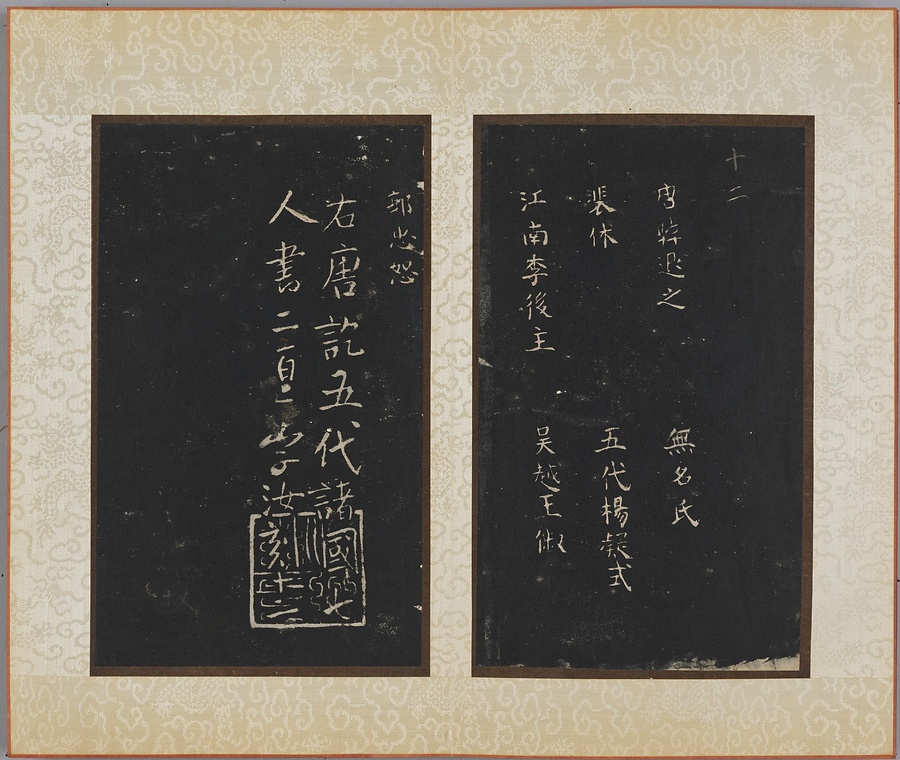 十二
唐韓退之
無名氏
裴休
五代楊凝式
江南李後主
吳越王俶
郭忠恕
右唐訖五代諸國七
人書二百 字汝刻十二